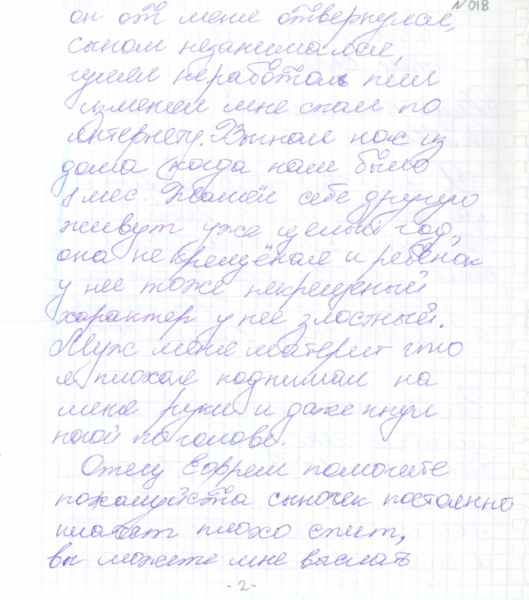 №018
он от меня отвернулся,
сыном незанимался,
гулял неработал пил
изменял мне спал по
интернету. Выгнал нас из
дома когда нам было
8 мес. Нашёл себе другую
живут уже целый год,
она не крещёная и ребёнок
у нее тоже некрещеный
характер у нее злостный.
Муж меня материт что
я плохая поднимал на
меня руки и даже пнул
ногой по голове.
Отец Ефрем помогите
пожалуйста сыночек постоянно
плачет плохо спит,
вы можете мне выслать
-2-